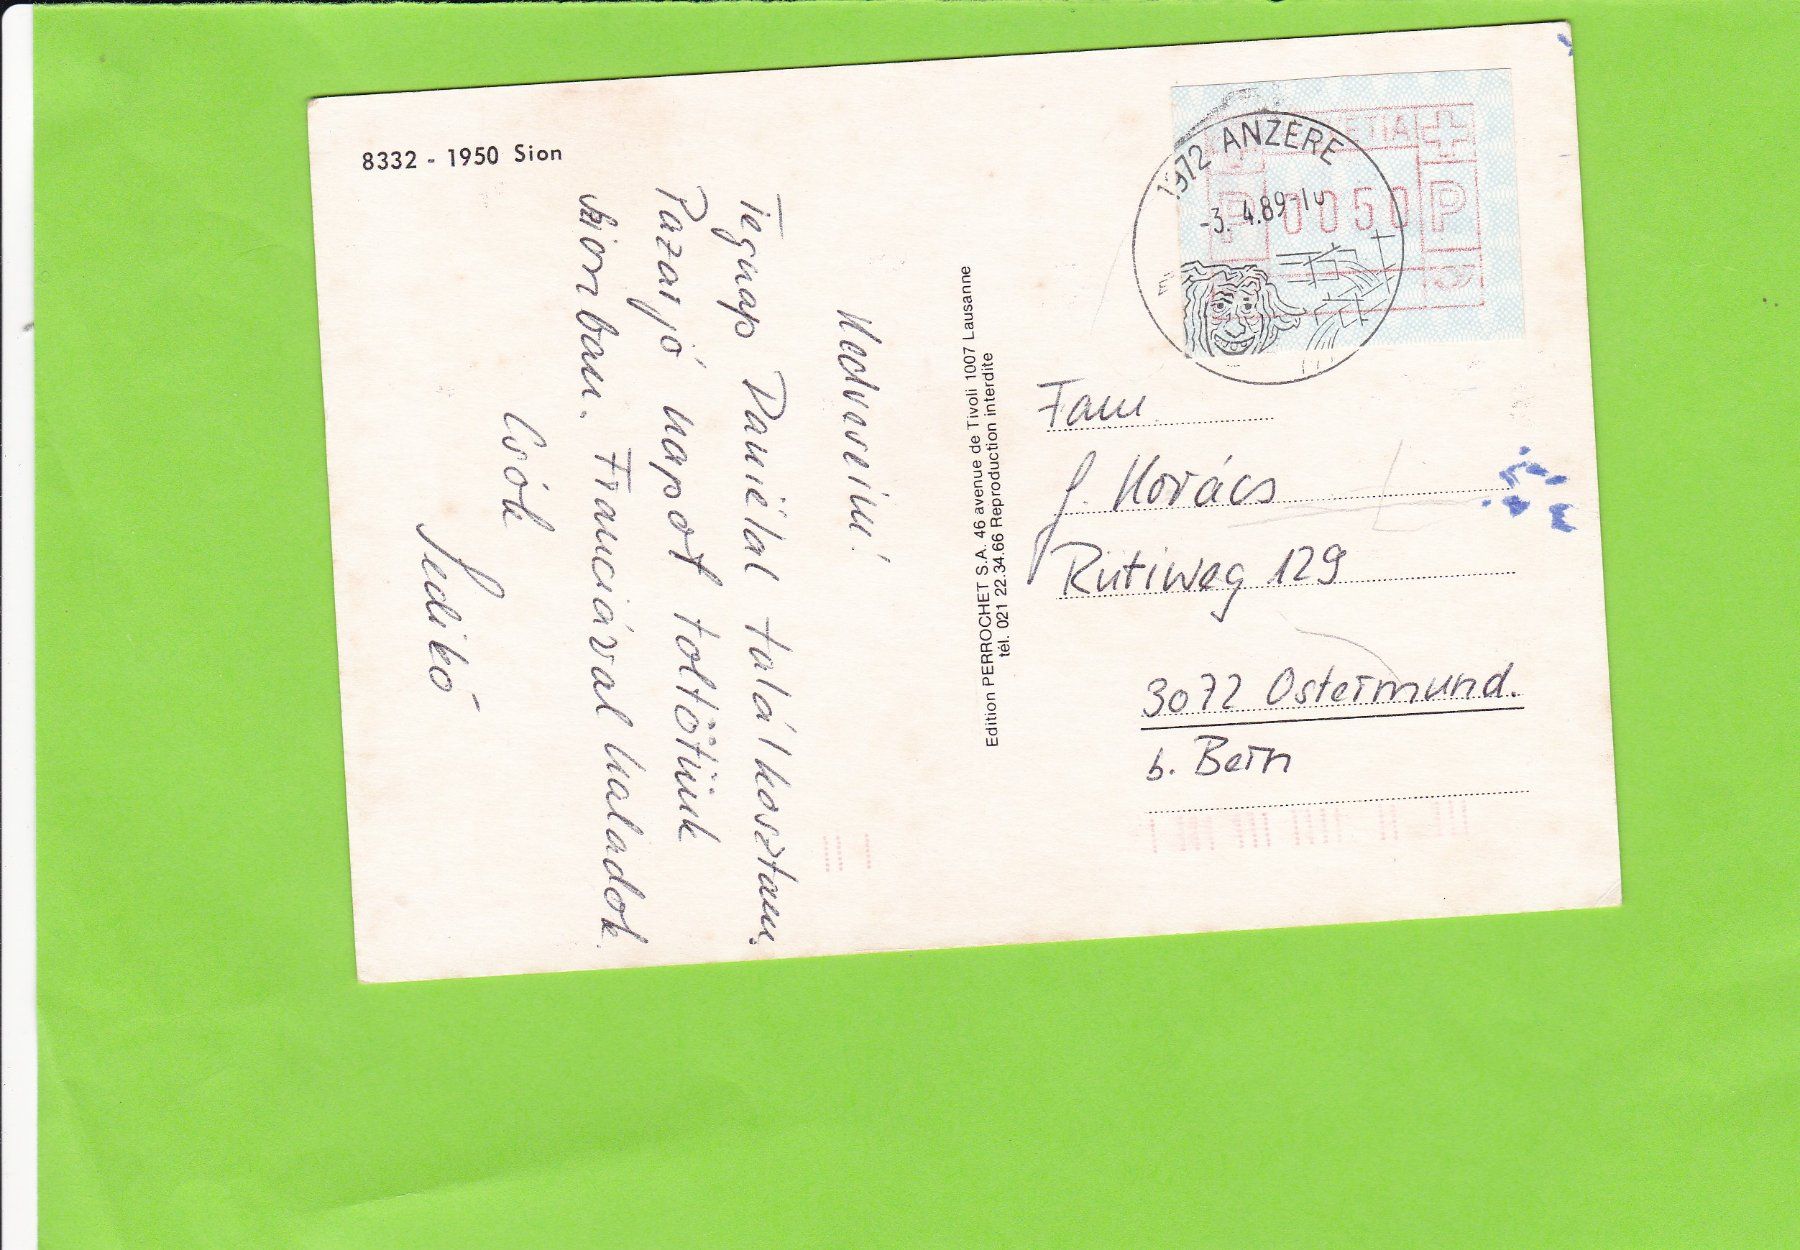 8332 - 1950 Sion
Kedveseim!
Tegnap Daniélal találkosztam,
Pazar jó napot töltöttünk
Sionban. Franciával haladok.
Csók
Ildikó
Edition PERROCHET S.A. 46 avenue de Tivoli 1007 Lausanne
tél. 021 22.34.66 Reproduction interdite
1972 ANZÈRE
-3. 4.89-10
HELVETIA
P 0050 P
Fam
J. Kovács
Rütiweg 129
3072 Ostermund.
b. Bern